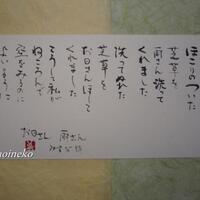 ほこりのついた
芝草を
雨さん洗って
くれました
洗ってぬれた
芝草を
お日さんほして
くれました
こうして私が
ねころんで
空をみるのに
よいように
お日さん 雨さん
みすゞ詩
moineko